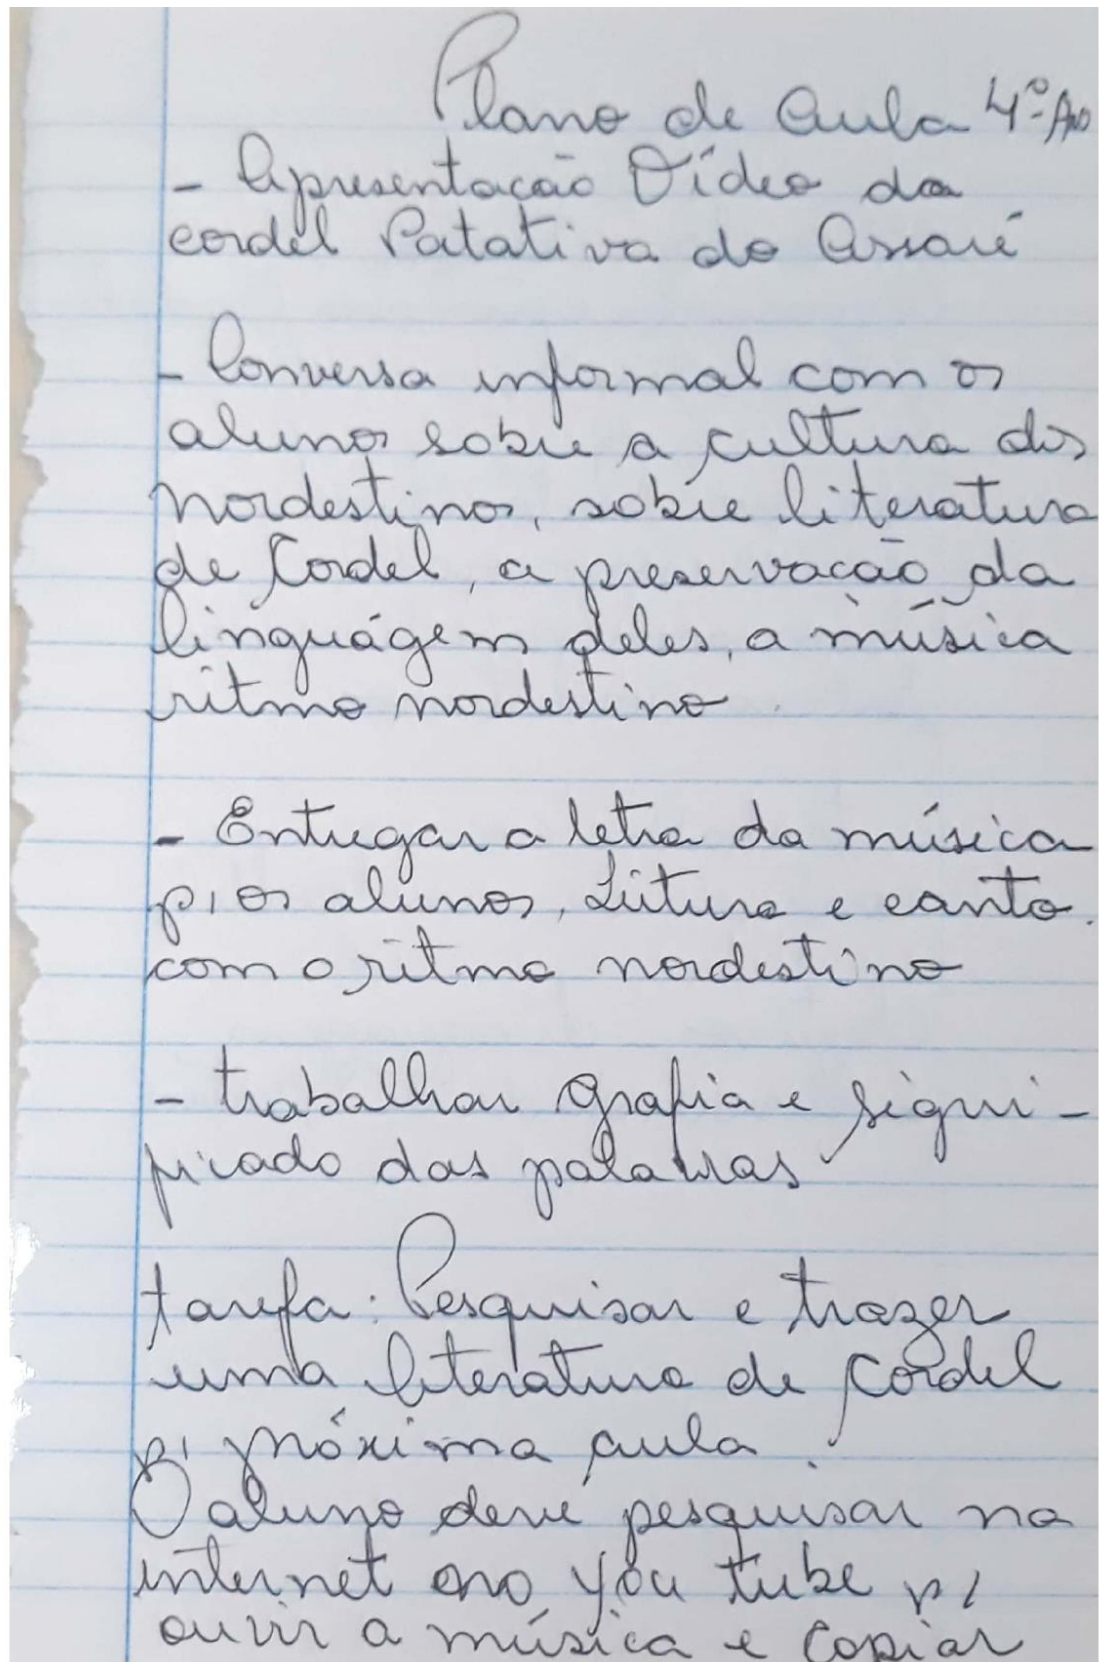 Plano de Aula 4º Ano
- Apresentação Vídeo da
cordel Patativa do Assaré
- Conversa informal com os
alunos sobre a cultura dos
nordestinos, sobre literatura
de Cordel, a preservação da
linguágem deles, a música
ritmo nordestino.
- Entregar a letra da música
p/ os alunos, Leitura e canto
com o ritmo nordestino
- trabalhar grafia e signi-
ficado das palavras
tarefa: Pesquisar e trazer
uma literatura de Cordel
p/ próxima aula.
O aluno deve pesquisar na
internet ono you tube p/
ouvir a música e copiar